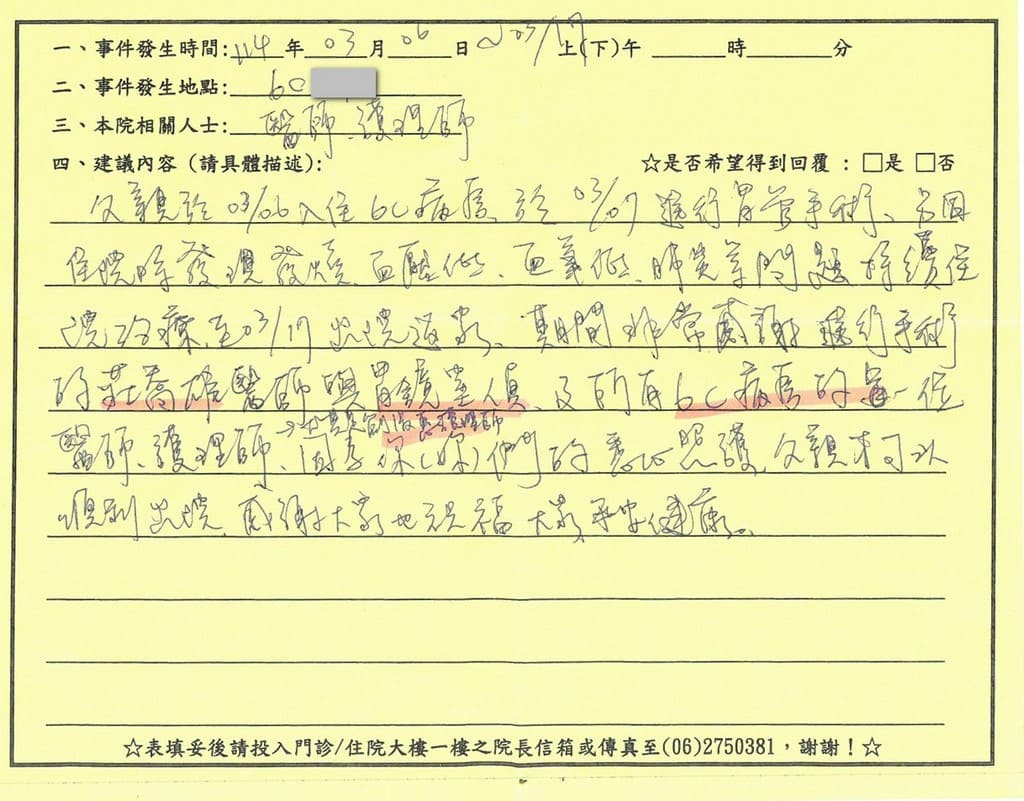 一、事件發生時間:114年03月06日~03/17 上(下)午 ____時____分
二、事件發生地點:6C
三、本院相關人士:醫師、護理師
四、建議內容（請具體描述): ☆是否希望得到回覆：□是 □否
父親於03/06入住6C病房,於03/07進行胃管手術、另因
住院時發現發燒、血壓低、血氧低、肺炎等問題持續住
院治療,至03/17出院返家、期間非常感謝進行手術
的莊喬雄醫師與胃鏡室人員、及所有6C病房的每一位
醫師、護理師、因有你(妳)們的悉心照護,父親才可以
→尤其是 護理師
順利出院,感謝大家也祝福大家平安健康。
☆表填妥後請投入門診/住院大樓一樓之院長信箱或傳真至(06)2750381，謝謝！☆